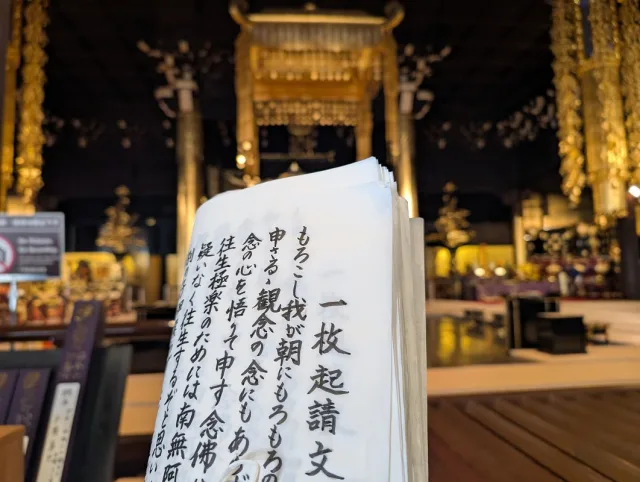 一枚起請文
もろこし我が朝にもろもろの
申さるゝ観念の念にもあ
念の心を悟りて申す念佛
往生極楽のためには南無阿
疑いなく往生するぞと思い